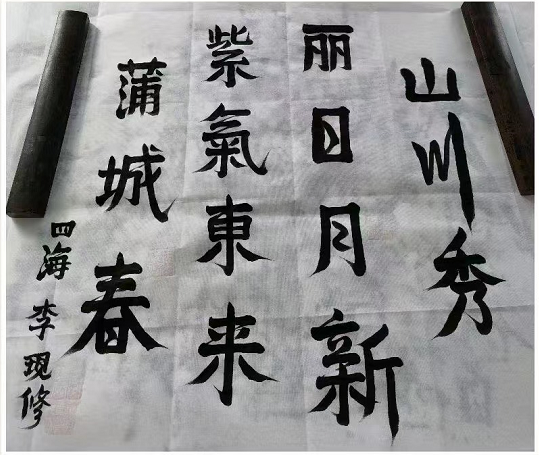 山川秀
丽日月新
紫氣東来
蒲城春
四海 李现修